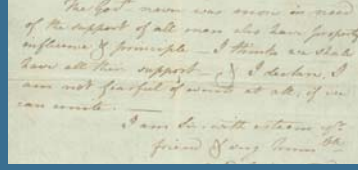 The Govt never was more in need
of the support of all men who have property
influence & principle — I think we shall
have all their support — & I declare, I
am not fearful of events at all, if we
can unite. —
I am Sir, with esteem yr
friend & very